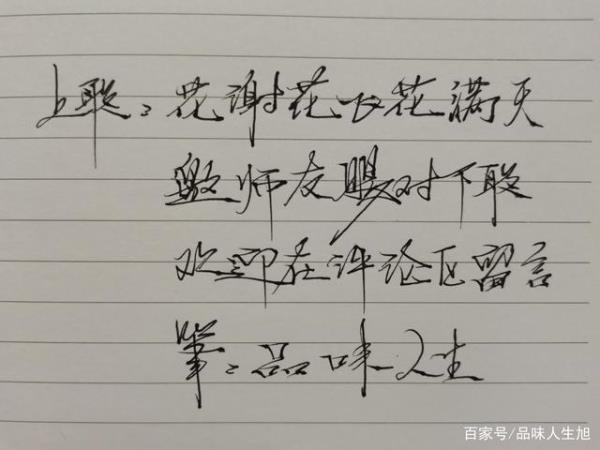 上联:花谢花飞花满天
邀师友赐对下联
欢迎在评论区留言
笔:品味人生
百家号/品味人生旭